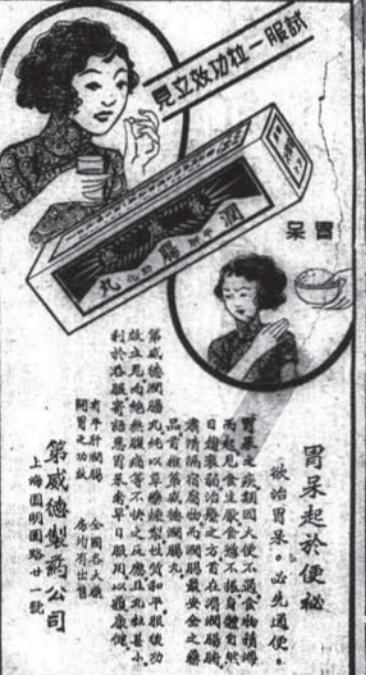 試服一粒功效立見
潤腸丸
平肝
助化
胃呆
胃呆起於便秘
欲治胃呆。必先通便。
胃呆之疾類因大便不通,食物積滯
而起見食生厭食慾不振身體自然
日趨衰弱治療之方首在滑潤腸臟
肅清隔宿腐物而潤腸最安全之藥
品首推第威德潤腸丸
第威德潤腸丸純以草藥煉製性質和平,服後功
效立見而絕無腹痛等不快之反應且丸粒甚小
利於吞服寄語患胃呆者早日服用以獲康健
有平肝潤腸
開胃之功效
全國各大藥
房均有出售
第威德製药公司
上海圓明園路廿一號